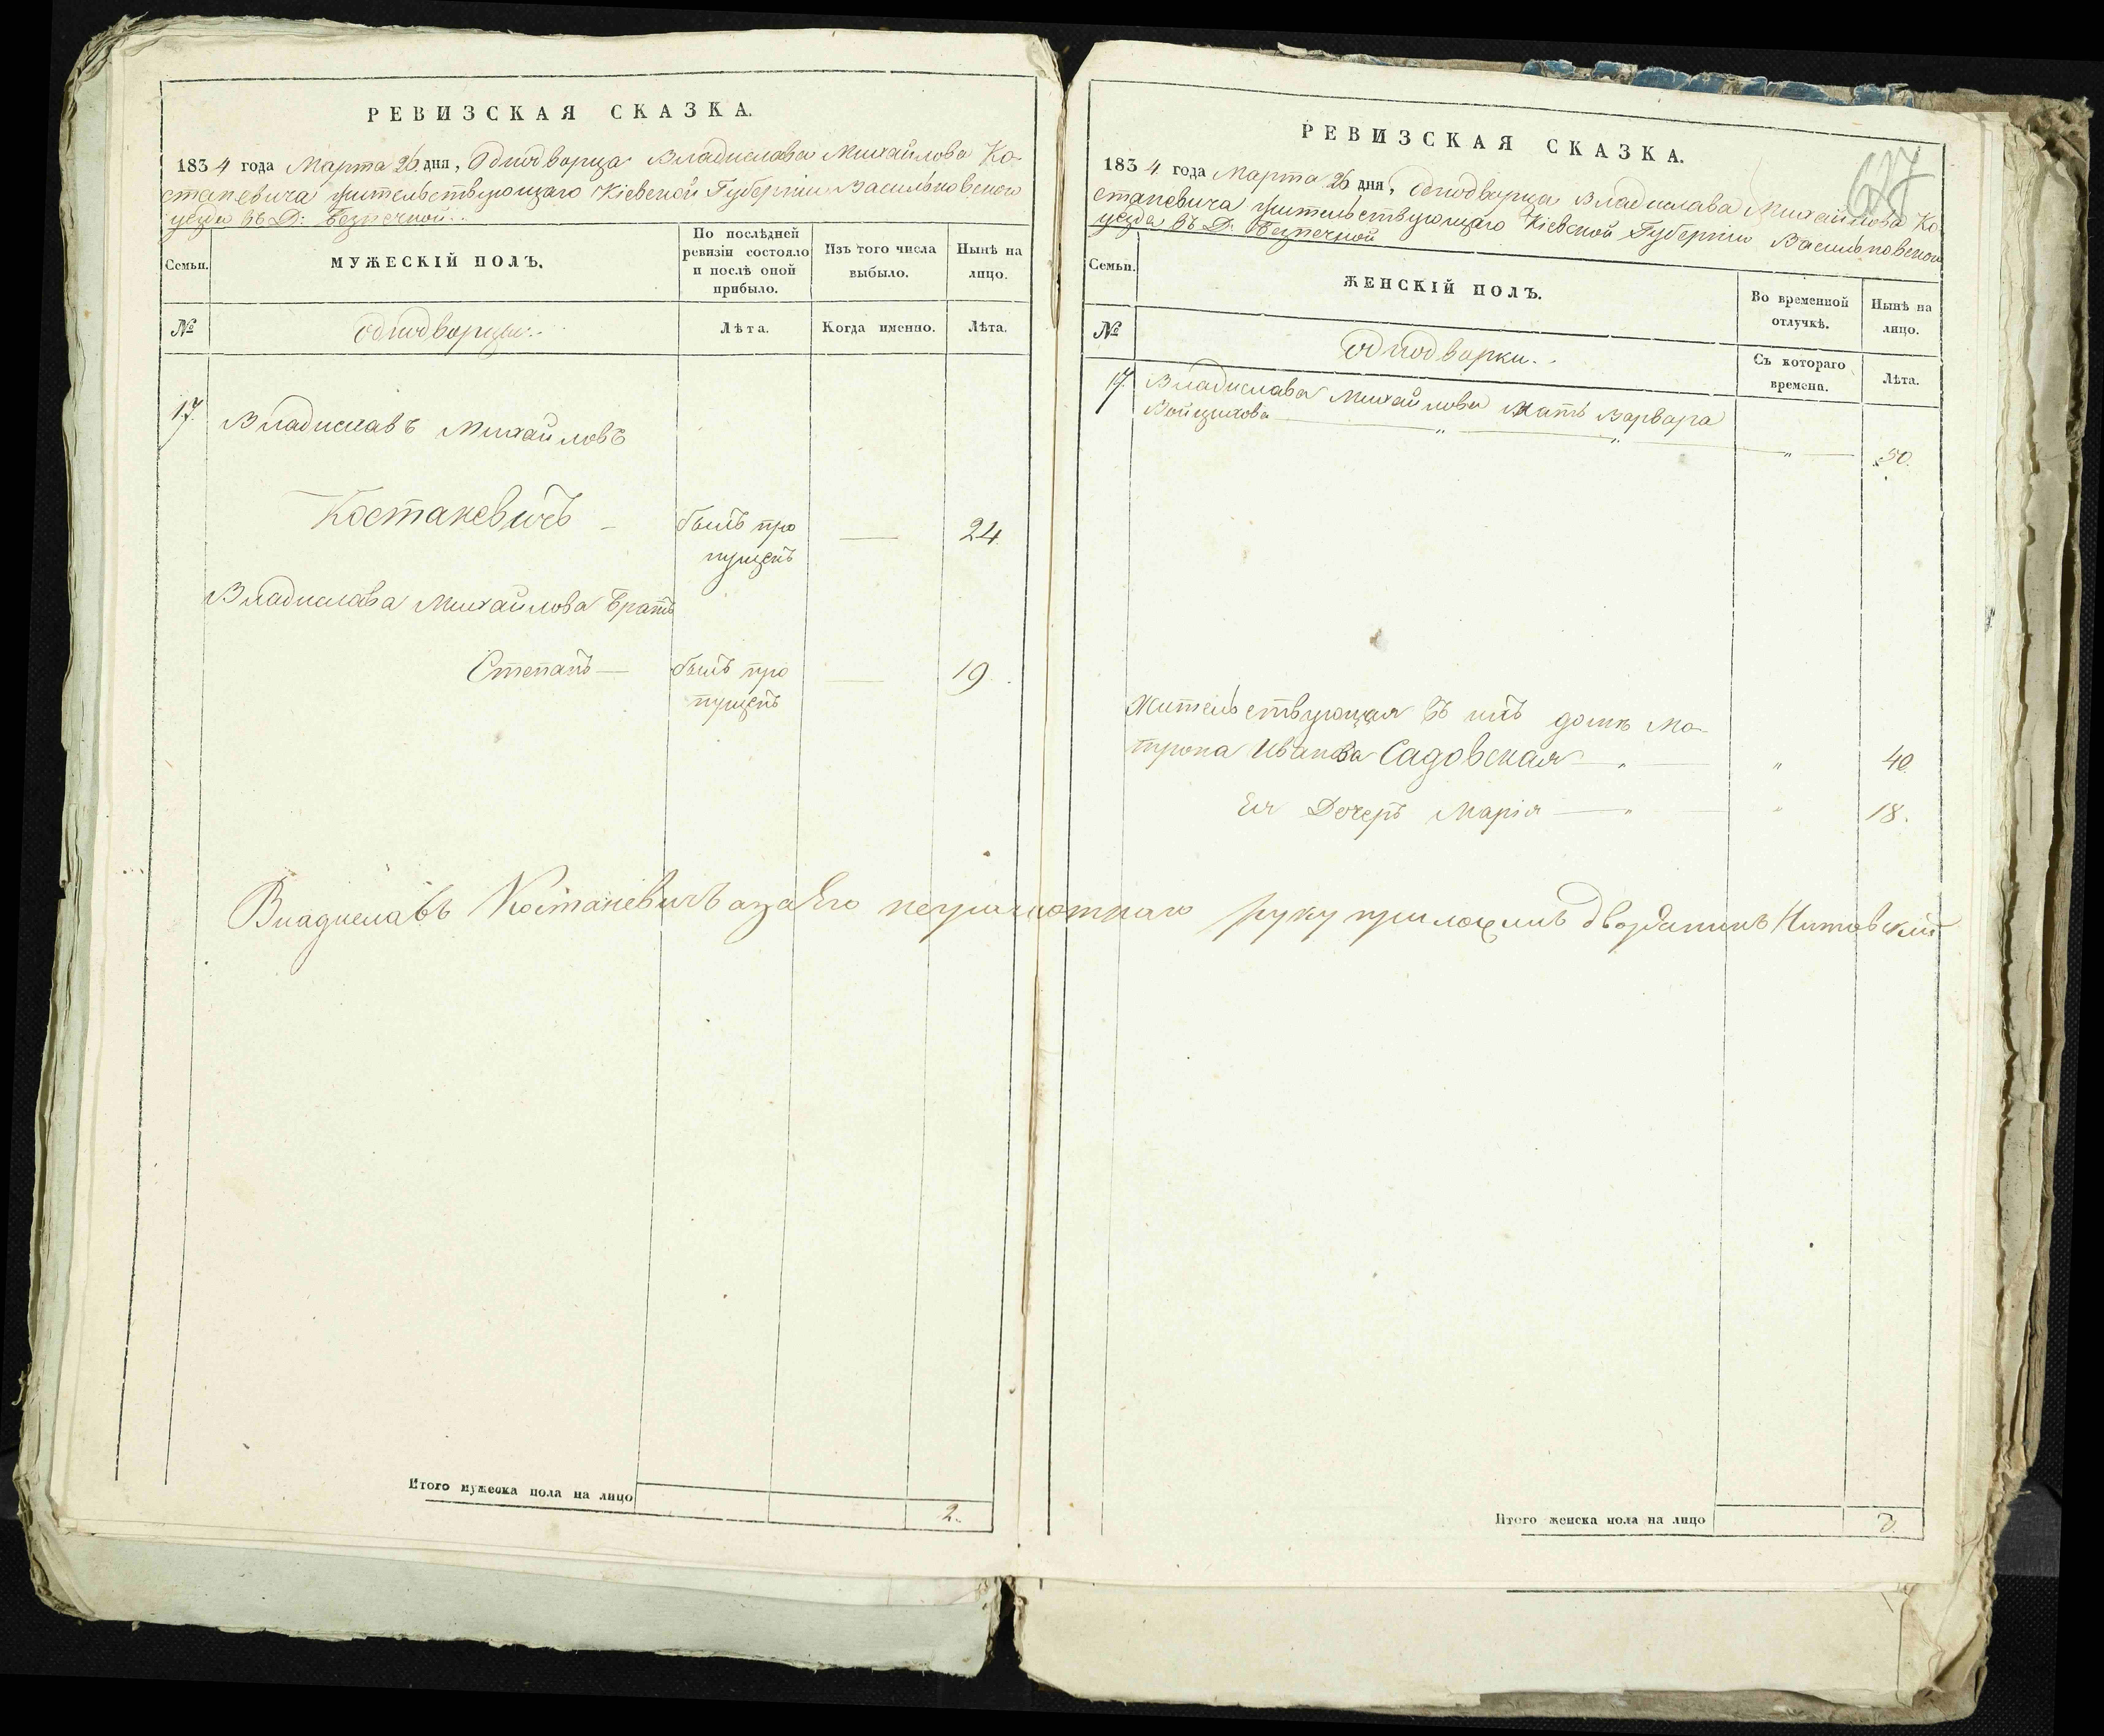 РЕВИЗСКАЯ СКАЗКА.
1834 года Марта 26 дня, Однодворца Владислава Михайлова Ко-
станевича жительствующаго Кіевской Губерніи Васильковскаго
уезда въ Д: Безпечной
Семьи.
МУЖЕСКІЙ ПОЛЪ.
По послѣдней
ревизіи состояло
и послѣ оной
прибыло.
Изъ того числа
выбыло.
Нынѣ на
лицо.
№
однодворцы
Лѣта.
Когда именно.
Лѣта.
17. Владиславъ Михайловъ
Костаневичъ — былъ про — 24.
пущенъ
Владислава Михайлова братъ
Степанъ — былъ про — 19.
пущенъ
Владиславъ Костаневичъ а за Его неграмотнаго руку приложилъ дворянинъ
Итого мужеска пола на лицо
2.
617
РЕВИЗСКАЯ СКАЗКА.
1834 года Марта 26 дня, Однодворца Владислава Михайлова Ко-
станевича жительствующаго Кіевской Губерніи Васильковскаго
уезда въ Д: Безпечной
Семьи.
ЖЕНСКІЙ ПОЛЪ.
Во временной
отлучкѣ.
Нынѣ на
лицо.
№
однодворки.
Съ котораго
времени.
Лѣта.
17. Владислава Михайлова мать Варвара
Войцихова — " — " — " — 50.
Жительствующая въ ихъ доме Ма-
трона Иванова Садовская — " — " 40.
Ея Дочеръ Марія — " — " 18.
Итого женска пола на лицо
3.